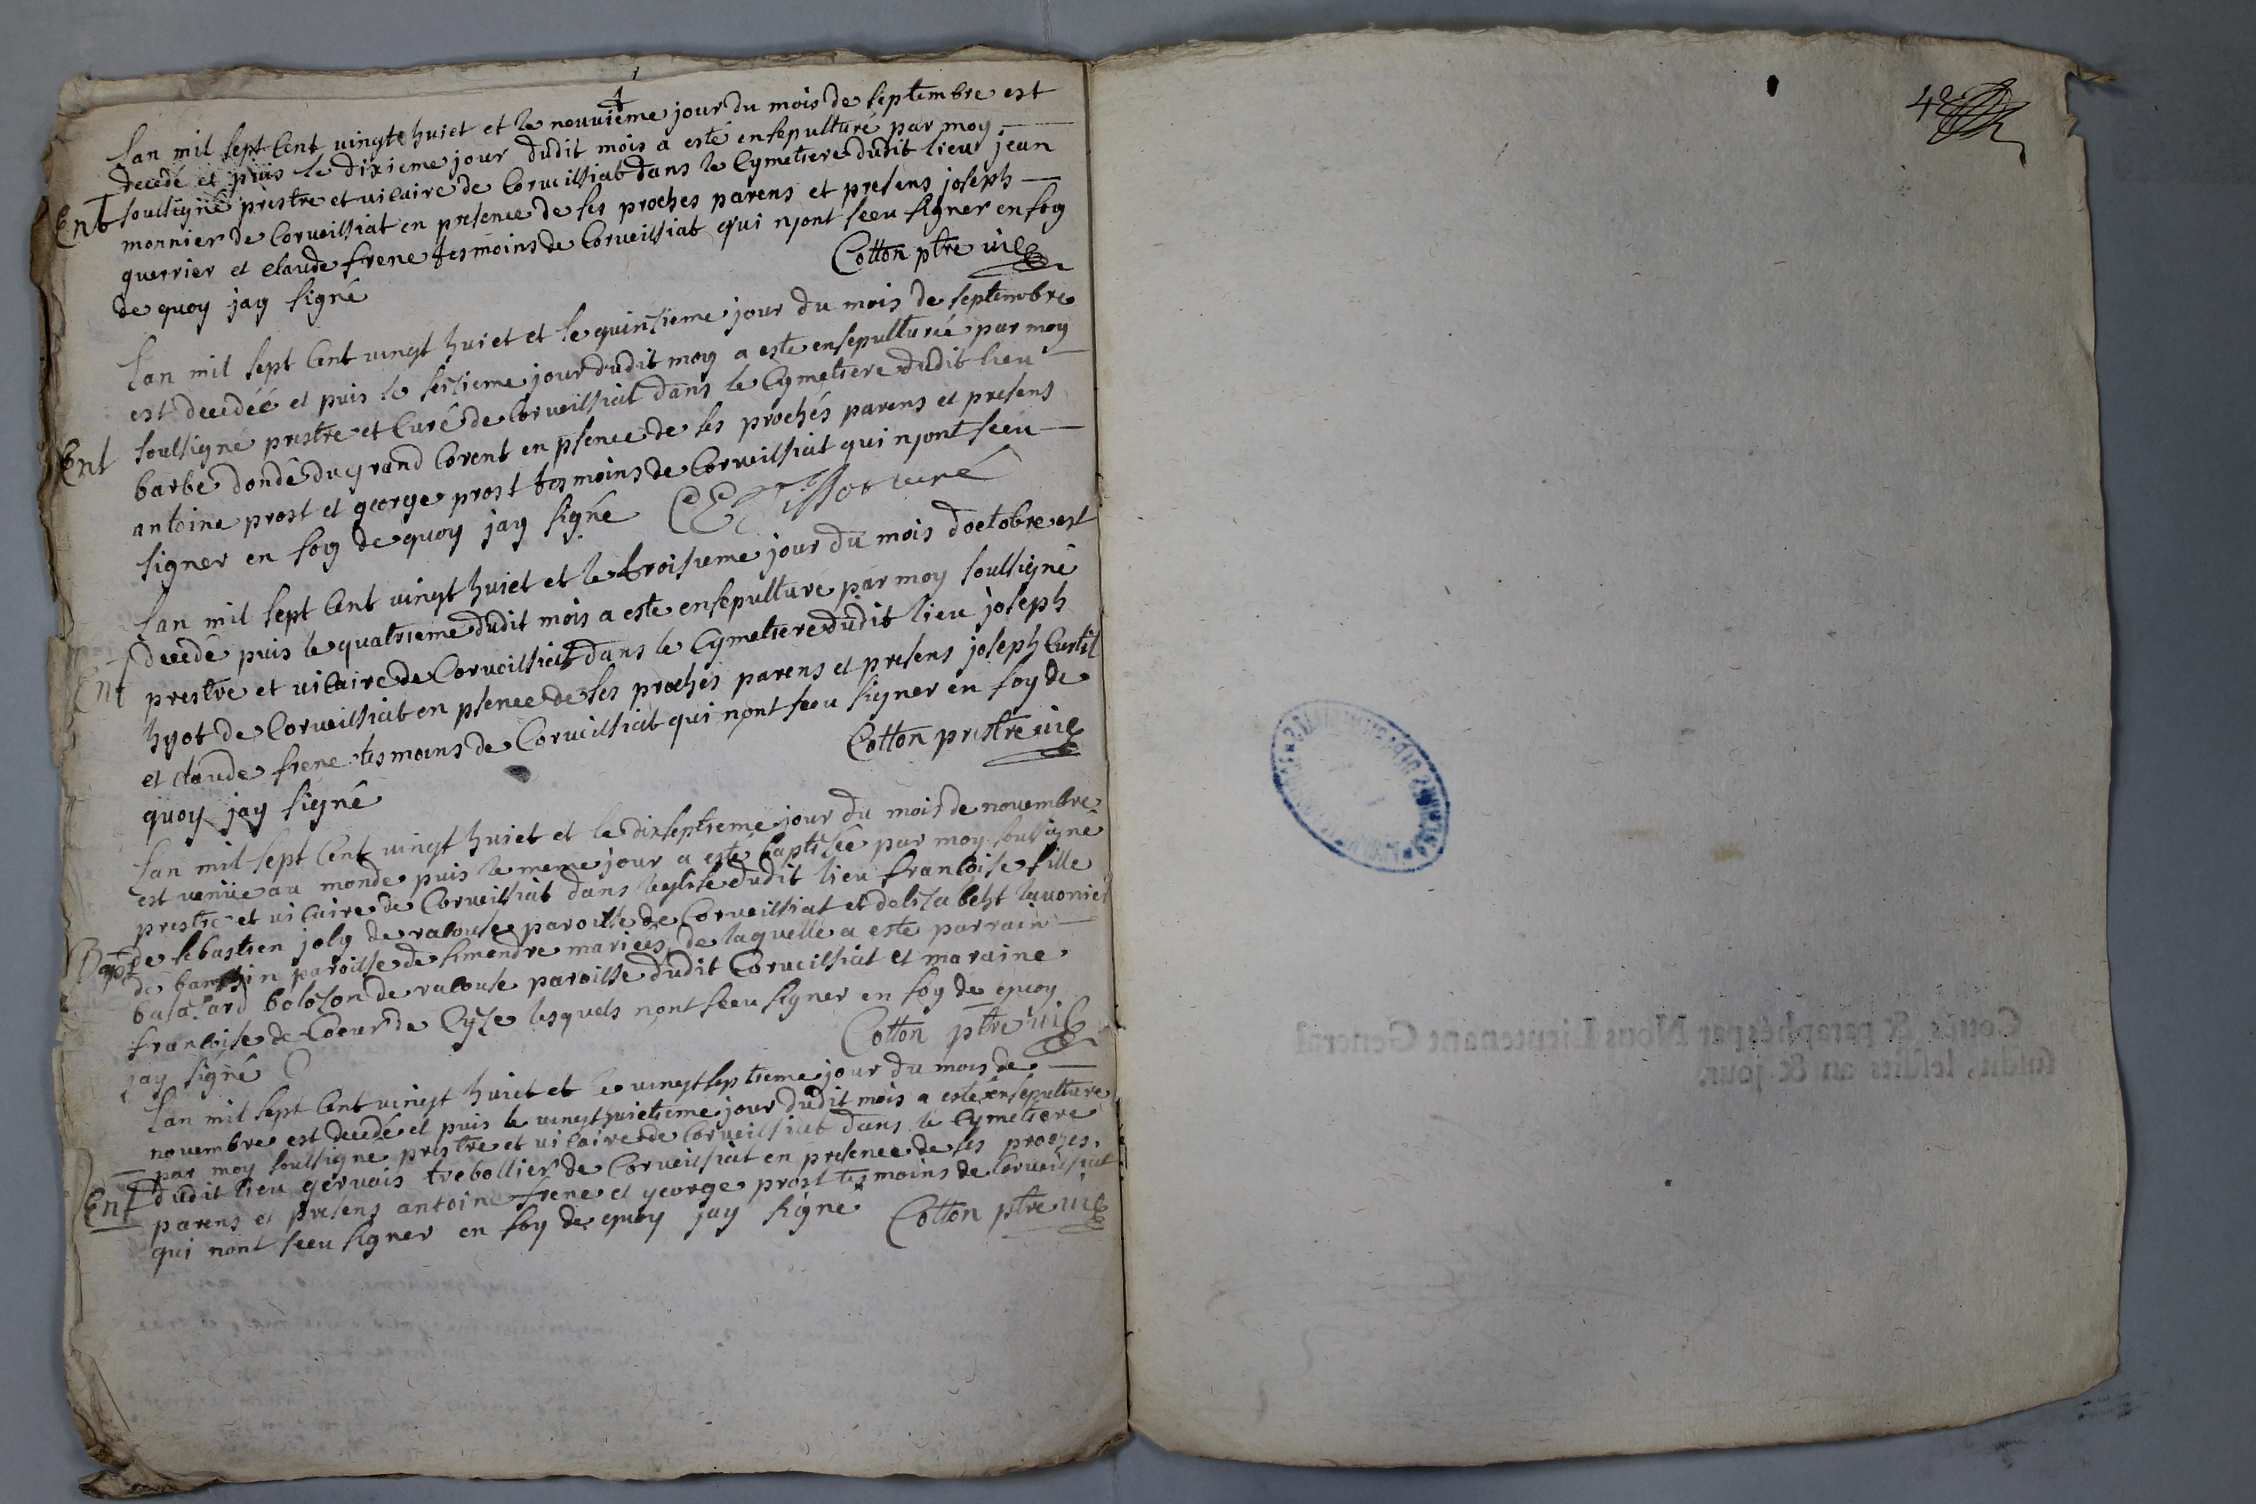 Lan mil sept Cent uingte huiet et le neuuieme jour du mois de septembre est
decedé et puis le dixieme jour dudit mois a esté ensepulturé par moy
soulsigné prestre et uicaire de Corueissiat dans le Cymetiere dudit lieu jean
Ent
monnier de Corueissiat en presence de ses proches parens et presens joseph
guerrier et claude frene tesmoins de Corueissiat qui nont sceu signer en foy
de quoy jay signé
Cotton ptre uic
Lan mil sept Cent uingt huiet et le quinsieme jour du mois de septembre
est decedée et puis le sesieme jour dudit moy a este ensepulturée par moy
soulsigné prestre et Curé de Corueissiat dans le Cymetiere dudit lieu
Ent
barbe dondé du grand Corent en psence de ses prochés parens et presens
antoine prost et george prost tesmoins de Corueissiat qui nont sceu
signer en foy de quoy jay signé
curé
Lan mil sept Cent uingt huiet et le troisieme jour du mois doctobre est
decedé puis le quatrieme dudit mois a este ensepulturé par moy soulsigné
prestre et uicaire de Corueissiat dans le Cymetiere dudit lieu joseph
Ent
hyot de Corueissiat en psence de ses prochés parens et presens joseph Curtil
et claude frene tesmoins de Corueissiat qui nont sceu signer en foy de
quoy jay signé
Cotton prestre uic
Lan mil sept Cent uingt huiet et le dixseptieme jour du mois de nouembre
est venüe au monde puis le meme jour a este baptisée par moy soulsigné
prestre et uicaire de Corueissiat dans leglise dudit lieu francoise fille
Bapt
de sebastien joly de ualouse paroisse de Corueissiat et delisabeht
de paroisse de simandre mariees de laquelle a esté parrain
balasard bolozon de ualouse paroisse dudit Corueissiat et maraine
francoise de Coeur de Cyze lesquels nont sceu signer en foy de quoy
jay signé
Cotton ptre uic
Lan mil sept Cent uingt huiet et le uingt septieme jour du mois de
nouembre est decedé et puis le uingt huietieme jour dudit mois a esté ensepulturé
par moy soulsigné prestre et uicaire de Corueissiat dans le Cymetiere
Ent
dudit lieu geruais trebollier de Corueissiat en presence de ses proches
parens et presens antoine frene et george prost tesmoins de Corueissiat
qui nont sceu signer en foy de quoy jay signé
Cotton ptre uic
42
Cottés & paraphés par Nous Lieutenant General
susdit, lesdits an & jour.